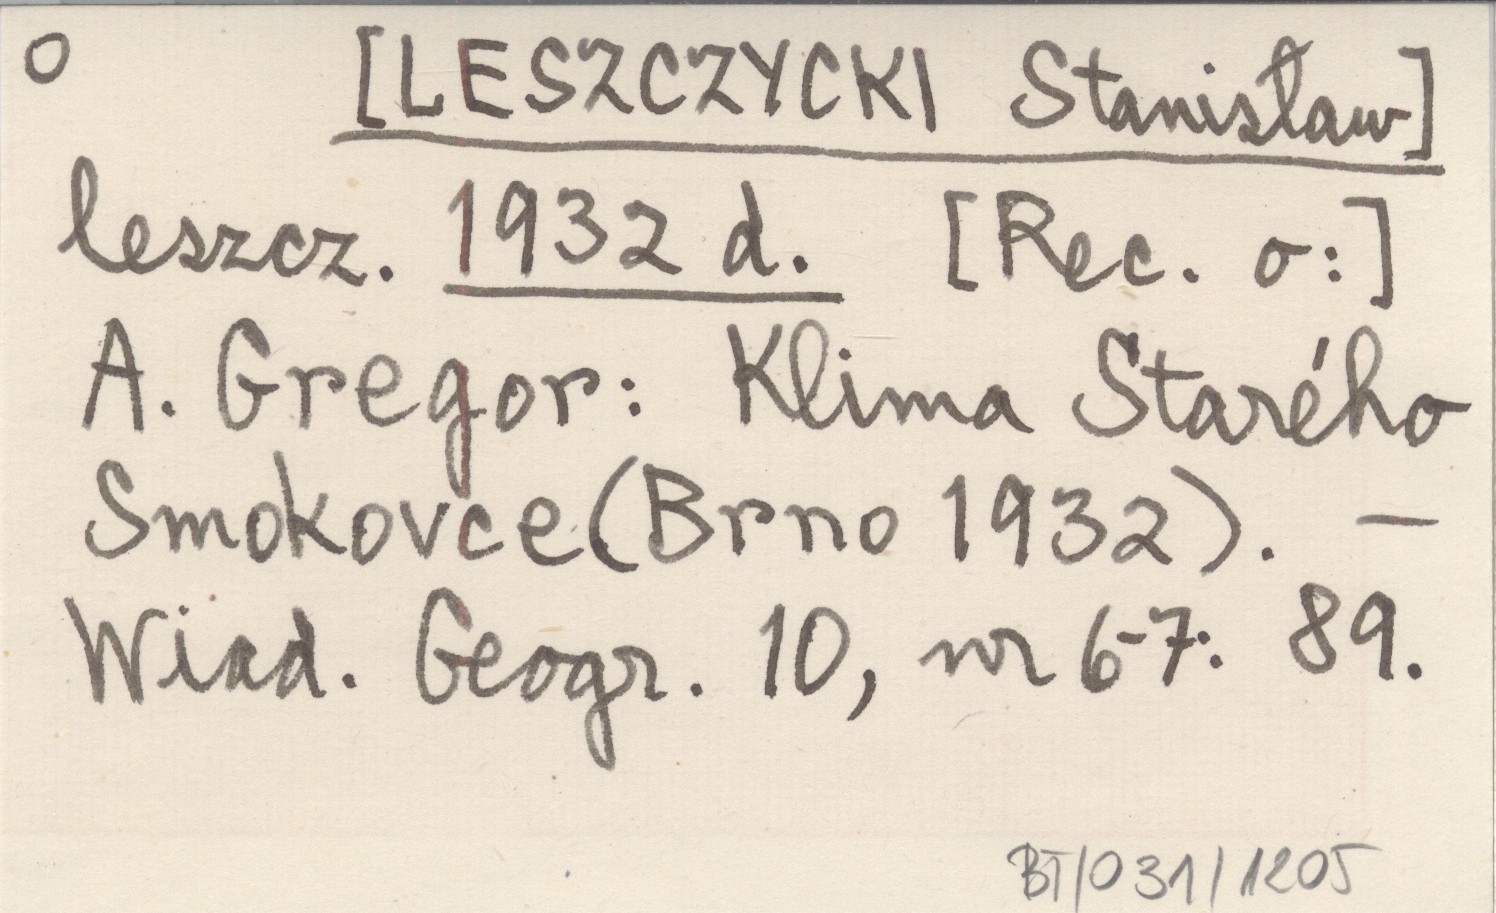 o [LESZCZYCKI Stanisław]
leszcz. 1932 d. [Rec. o:]
A. Gregor: Klima Starého
Smokovce (Brno 1932). —
Wiad. Geogr. 10, nr 6-7: 89.
BT/031/1205